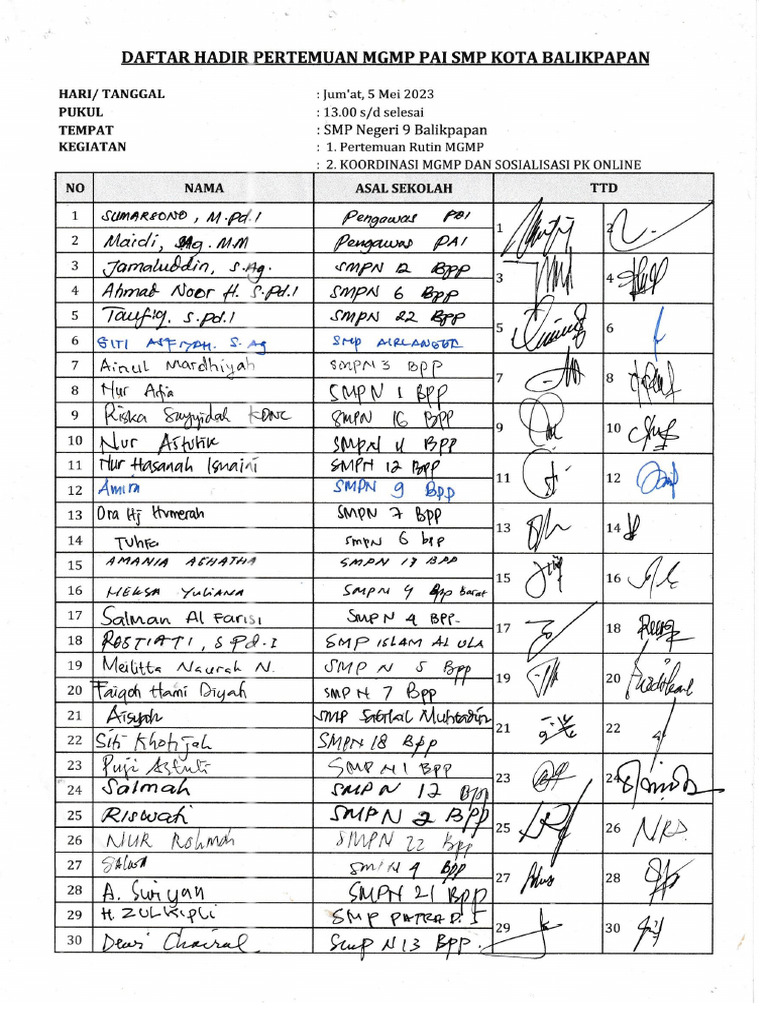 DAFTAR HADIR PERTEMUAN MGMP PAI SMP KOTA BALIKPAPAN
HARI/ TANGGAL : Jum'at, 5 Mei 2023
PUKUL : 13.00 s/d selesai
TEMPAT : SMP Negeri 9 Balikpapan
KEGIATAN : 1. Pertemuan Rutin MGMP
: 2. KOORDINASI MGMP DAN SOSIALISASI PK ONLINE
NO NAMA ASAL SEKOLAH TTD
1 SUMARSONO, M.Pd.I Pengawas PAI 1 2
2 Maidi, S.Ag. M.M Pengawas PAI
3 Jamaluddin, S.Ag. SMPN 12 Bpp 3 4
4 Ahmad Noor H. S.Pd.I SMPN 6 Bpp
5 Taufiq. S.pd.I SMPN 22 Bpp 5 6
6 SITI ASFIYAH. S.Ag SMP AIRLANGGA
7 Ainul Mardhiyah SMPN 3 BPP 7 8
8 Nur Asfia SMPN 1 BPP
9 Riska SMPN 16 BPP 9 10
10 Nur Astutik SMPN 4 BPP
11 Nur Hasanah Isnaini SMPN 12 BPP 11 12
12 Amira SMPN 9 Bpp
13 Dra Hj Humerah SMPN 7 Bpp 13 14
14 Tuhfa SMPN 6 bpp
15 AMANIA ASHATHA SMPN 13 BPP 15 16
16 HEKSA YULIANA SMPN 4 Bpp Barat
17 Salman Al Farisi SMPN 4 BPP. 17 18
18 ROSTIATI, S.Pd.I SMP ISLAM AL ULA
19 Meilitta Naurah N. SMP N 5 BPP 19 20
20 Faiqoh Hami Diyah SMP N 7 BPP
21 Aisyah SMP Sabilal Muhtadin 21 22
22 Siti Khotijah SMPN 18 Bpp
23 Puji Astuti SMPN 1 BPP 23 24
24 Salmah SMPN 12 Bpp
25 Riswati SMPN 2 BPP 25 26
26 NUR Rohmah SMPN 22 BPP
27 SMPN 9 BPP 27 28
28 A. Suriyan SMPN 21 BPP
29 H. ZULKIPLI SMP PATRA D. 5 29 30
30 Dewi Chairal SMP N 13 BPP.